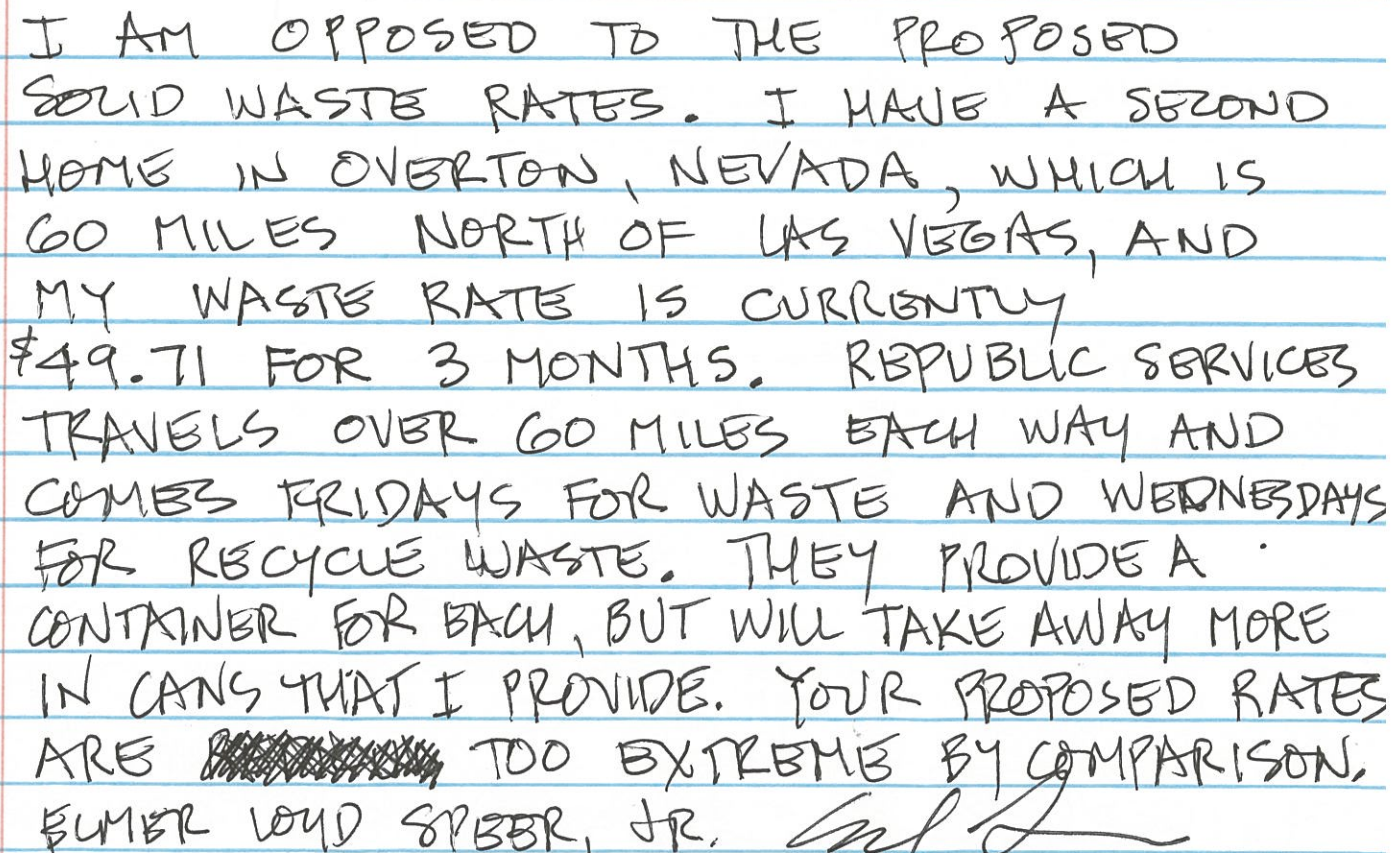 I AM OPPOSED TO THE PROPOSED
SOLID WASTE RATES. I HAVE A SECOND
HOME IN OVERTON, NEVADA, WHICH IS
60 MILES NORTH OF LAS VEGAS, AND
MY WASTE RATE IS CURRENTLY
$49.71 FOR 3 MONTHS. REPUBLIC SERVICES
TRAVELS OVER 60 MILES EACH WAY AND
COMES FRIDAYS FOR WASTE AND WEDNESDAYS
FOR RECYCLE WASTE. THEY PROVIDE A
CONTAINER FOR EACH, BUT WILL TAKE AWAY MORE
IN CANS THAT I PROVIDE. YOUR PROPOSED RATES
ARE TOO EXTREME BY COMPARISON.
ELMER LOYD SPEER, JR.